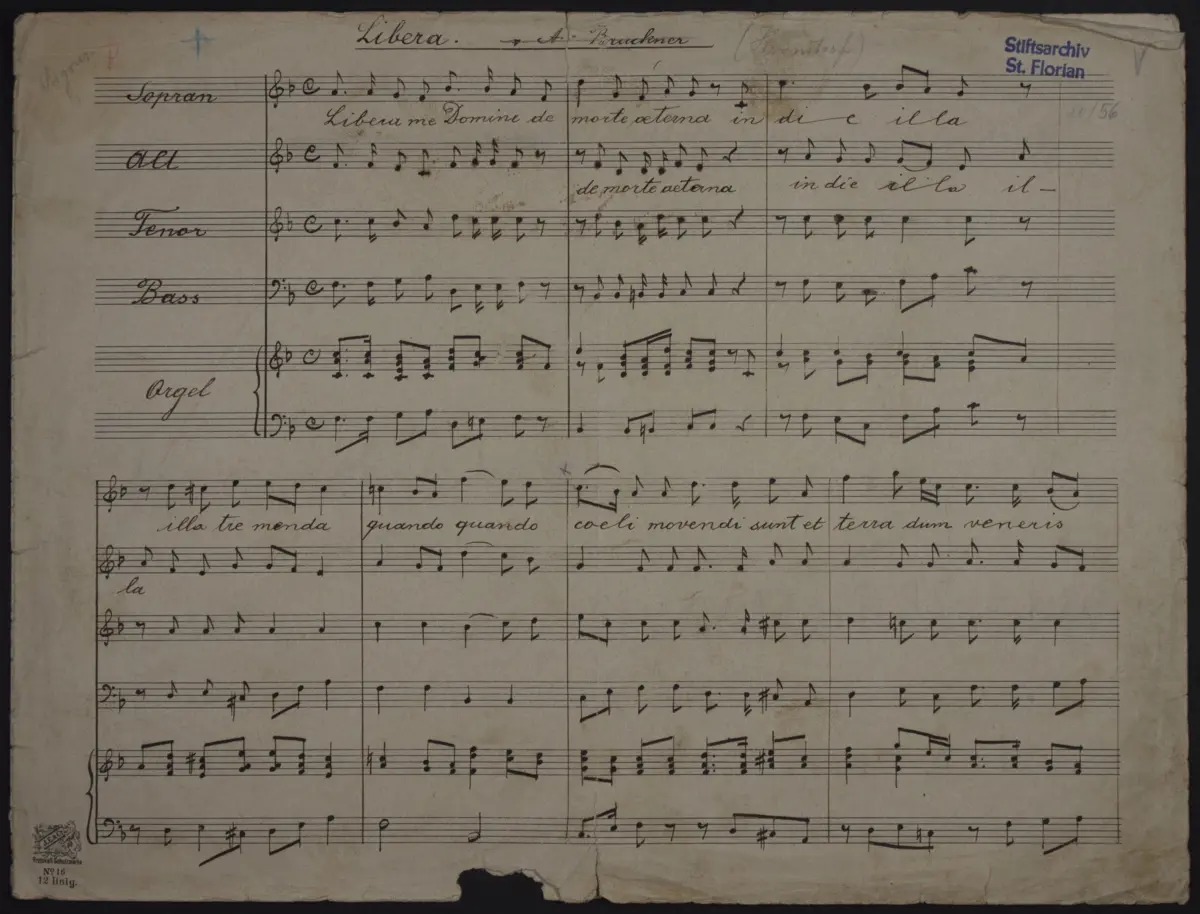 Libera. A. Bruckner
Stiftsarchiv
St. Florian
Sopran
Libera me Domine de morte æterna in di e illa
56
Alt
de morte aeterna in die il la il-
Tenor
Bass
Orgel
illa tre menda quando quando coeli movendi sunt et terra dum veneris
la
Nº 16
12 linig.